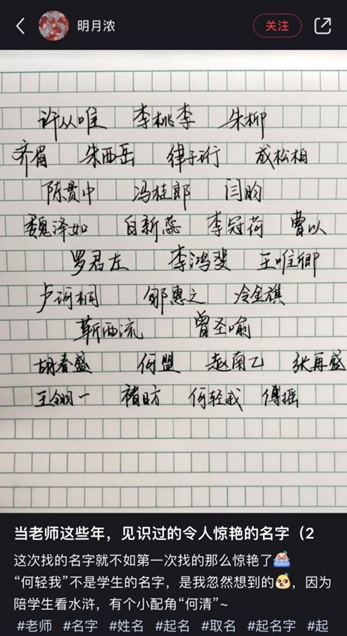 明月浓
关注
许从唯 李桃李 朱柳
齐眉 朱西岳 律子行 成松柏
陈贯中 冯桂郎 闫昀
魏泽如 白新蕊 李冠荷 曹以
罗君左 李鸿斐 王唯卿
卢诃桐 邹惠之 冷金旗
靳西流 曾圣喻
胡春盛 何盟 赵南乙 张再盛
王翎一 褚昉 何轻我 傅摇
当老师这些年，见识过的令人惊艳的名字（2
这次找的名字就不如第一次找的那么惊艳了
“何轻我”不是学生的名字，是我忽然想到的，因为
陪学生看水浒，有个小配角“何清”~
#老师 #名字 #姓名 #起名 #取名 #起名字 #起